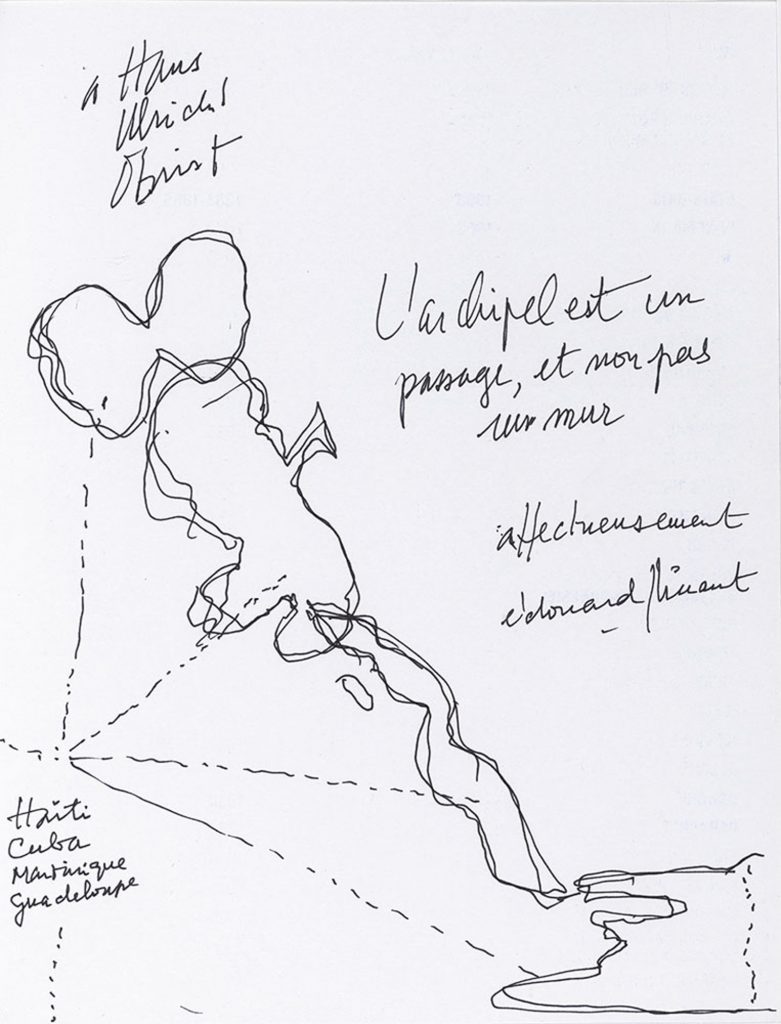 à Hans
Ulrich
Obrist
L'archipel est un
passage, et non pas
un mur
affectueusement
édouard glissant
Haïti
Cuba
Martinique
Guadeloupe